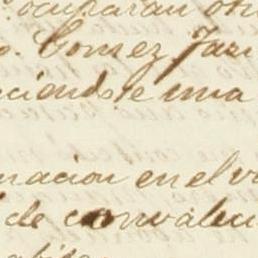 ocuparan
Gomez Fari
ciendose una
nacion en el v
de convalec